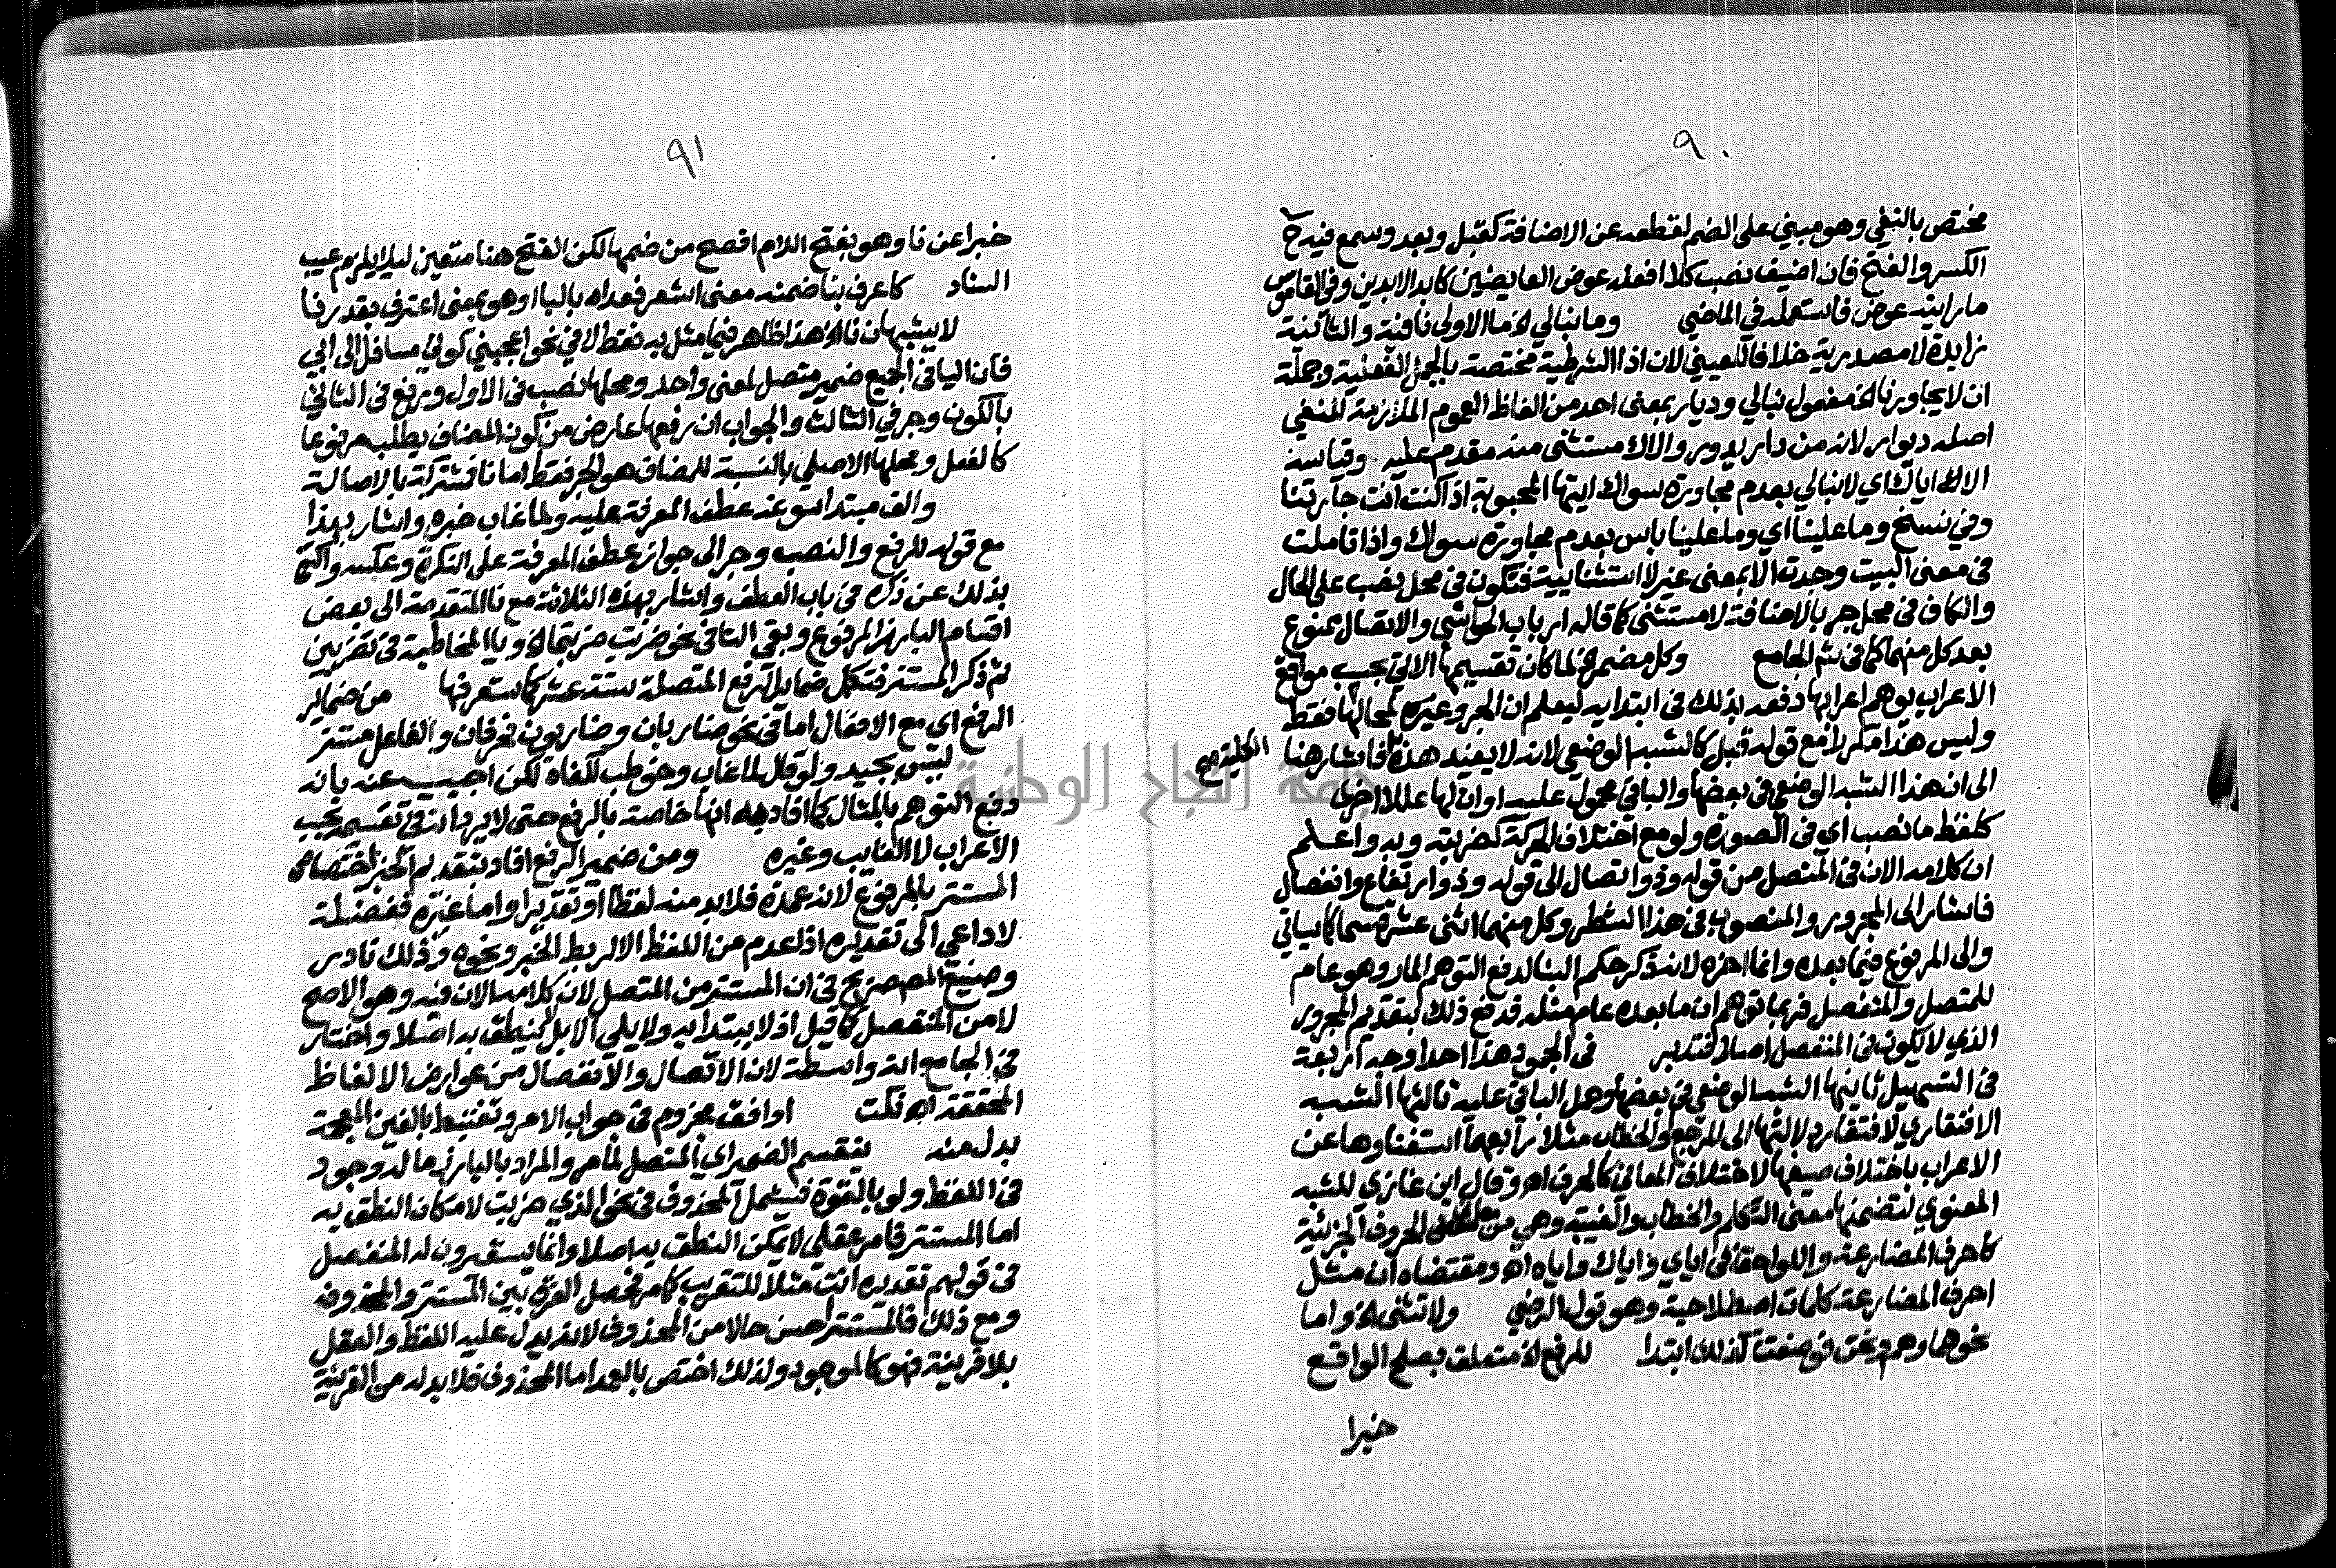 ٩٠
مختص بالنفي وهو مبني على الضم لقطعه عن الاضافة كقبل وبعد وسمع فيه ح
الكسر والفتح فان اضيف نصب كلا افعله عوض العايضين كابد الابدين وفي القاموس
ما رايته عوض فاستعمله في الماضي وما نبالي الخ ما الاولى نافية والثانية
زايدة لا مصدرية خلافا للعيني لان اذا الشرطية مختصة بالجمل الفعلية وجملة
ان لا يجاورنا الخ مفعول نبالي وديار بمعنى احد من الفاظ العموم الملازمة للنفي
اصله ديوار لانه من دار يدور والاك مستثنى منه مقدم عليه وقياسه
الا اياك اي لا نبالي بعدم مجاورة سواك ايتها المحبوبة اذا كنت انت جارتنا
وفي نسخ وما علينا اي وما علينا باس بعدم مجاورة سواك واذا تاملت
في معنى البيت وجدته الا بمعنى غير لا استثنايية فتكون في محل نصب على الحال
والكاف في محل جر بالاضافة لا مستثنى كما قاله ارباب الحواشي والاتصال ممنوع
بعد كل منهما كما في نتم الجامع وكل مضمر الخ لما كان تقسيمها الاتي بحسب مواقع
الاعراب يوهم اعرابها دفعه بذلك في ابتدايه ليعلم ان الجر وغيره لمحالها فقط
وليس هذا مكررا مع قوله قبل كالشبه الوضعي لانه لا يفيد هذه فاشار هنا
الكلية صح
الى ان هذا الشبه الوضعي في بعضها والباقي محمول عليه او ان لها عللا اخرى
كلفظ ما نصب اي في الصورة ولو مع اختلاف الحركة كضربته وبه واعلم
ان كلامه الان في المتصل من قوله وذو اتصال الى قوله وذو ارتفاع وانفصال
فاشار الى المجرور والمنصوب في هذا الشطر وكل منهما اثنى عشر قسما كما سياتي
والى المرفوع فيما بعده وانما اخره لانه ذكر حكم البنا لدفع التوهم المار وهو عام
للمتصل والمنفصل فربما توهم ان ما بعده عام مثله فدفع ذلك بتقديم المجرور
الذي لا يكون في المنفصل اصلا فتدبر في الجمود هذا احد اوجه اربعة
في التسهيل ثانيها الشبه الوضعي في بعضها وحمل الباقي عليه ثالثها الشبه
الافتقاري لافتقار دلالتها الى المرجع والخطاب مثلا رابعها استغناوها عن
الاعراب باختلاف صيغها لاختلاف المعاني كالحرف اه وقال ابن غازي للشبه
المعنوي لتضمنها معنى التكلم والخطاب والغيبة وهي من معاني الحروف الجزئية
كاحرف المضارعة واللواحق في اياي واياك واياه اه ومقتضاه ان مثل
احرف المضارعة كلمات اصطلاحية وهو قول الرضي ولا تثنى الخ واما
نحو هما وهم ونحن فوضعت كذلك ابتدا للرفع الخ متعلق بصلح الواقع
خبرا
٩١
خبرا عن نا وهو بفتح اللام افصح من ضمها لكن الفتح هنا متعين ليلا يلزم عيب
السناد كاعرف بنا ضمنه معنى اشعر فعداه بالبا او هو بمعنى اعترف بقدرنا
لا يشبهان نا الخ هذا ظاهر فيما مثل به فقط لا في نحو اعجبني كوني مسافر الى ابي
فان اليا في الجميع ضمير متصل لمعنى واحد ومحلها نصب في الاول ورفع في الثاني
بالكون وجر في الثالث والجواب ان رفعها عارض من كون المضاف يطلب مرفوعا
كالفعل ومحلها الاصلي بالنسبة للمضاف هو الجر فقط اما نا فمشتركة بالاصالة
والف مبتدا سوغه عطف المعرفة عليه ولما غاب خبره واشار بهذا
مع قوله للرفع والنصب وجر الى جواز عطف المعرفة على النكرة وعكسه واكتفى
بذلك عن ذكره في باب العطف واشار بهذه الثلاثة مع نا المتقدمة الى بعض
اقسام البارز المرفوع وبقي التا في نحو ضربت ضربتما الخ ويا المخاطبة في تضربين
ثم ذكر المستتر فتكمل ضماير الرفع المتصلة ستة عشر كما ستعرفها من ضماير
الرفع اي مع الافعال اما في نحو ضاربان وضاربون فحرفان والفاعل مستتر
ليس بجيد ولو قال لما غاب وخوطب لكفاه لكن اجيب عنه بانه
دفع التوهم بالمثال كما افاد به انها خاصة بالرفع حتى لا يرد انه في تقسيم بحسب
الاعراب لا الغايب وغيره ومن ضمير الرفع افاد بتقديم الخبر اختصاص
المستتر بالمرفوع لانه عمدة فلا بد منه لفظا او تقديرا واما غيره ففضلة
لا داعي الى تقديره اذا عدم من اللفظ الا لربط الخبر ونحوه وذلك نادر
وصنيع المص صريح في ان المستتر من المتصل لان كلامه الان فيه وهو الاصح
لا من المنفصل كما قيل اذ لا يبتدا به ولا يلي الا بل لا ينطق به اصلا واختار
في الجامع انه واسطة لان الاتصال والانفصال من عوارض الالفاظ
المحققة اه نكت اوافق مجزوم في جواب الامر وتغتبط بالغين المعجمة
بدل منه ينقسم الضمير اي المتصل لما مر والمراد بالبارز ما له وجود
في اللفظ ولو بالقوة فيشمل المحذوف في نحو الذي ضربت لامكان النطق به
اما المستتر فامر عقلي لا يمكن النطق به اصلا وانما يستعيرون له المنفصل
في قولهم تقديره انت مثلا للتقريب كما مر فحصل الفرق بين المستتر والمحذوف
ومع ذلك فالمستتر احسن حالا من المحذوف لانه يدل عليه اللفظ والعقل
بلا قرينة فهو كالموجود ولذلك اختص بالعمد اما المحذوف فلا بد له من القرينة
جامعة النجاح الوطنية